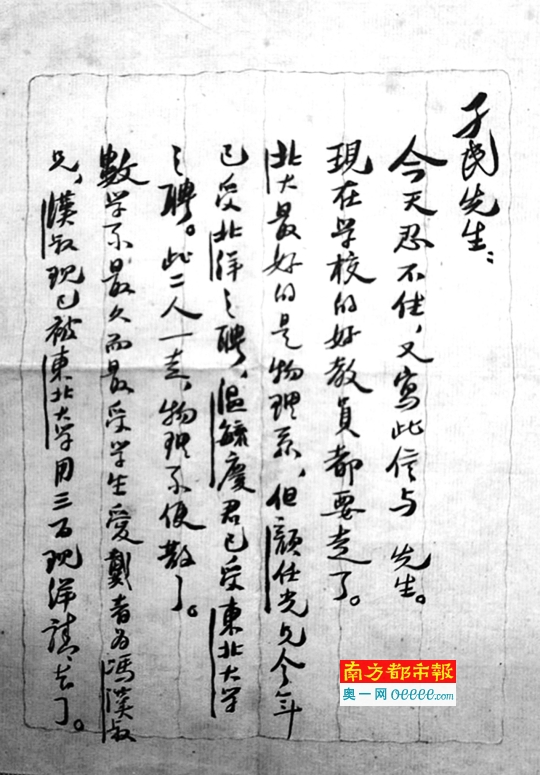 子民先生：
今天忍不住，又寫此信与 先生。
現在学校的好教員都要走了。
北大最好的是物理系，但顏任光兄今年
已受北洋之聘，温毓慶君已受東北大学
之聘。此二人一走，物理系便散了。
數学系最久而最受学生愛戴者为馮漢叔
兄，漢叔現已被東北大学用三百現洋請去了。
南方都市報
奥一网 oeeee.com